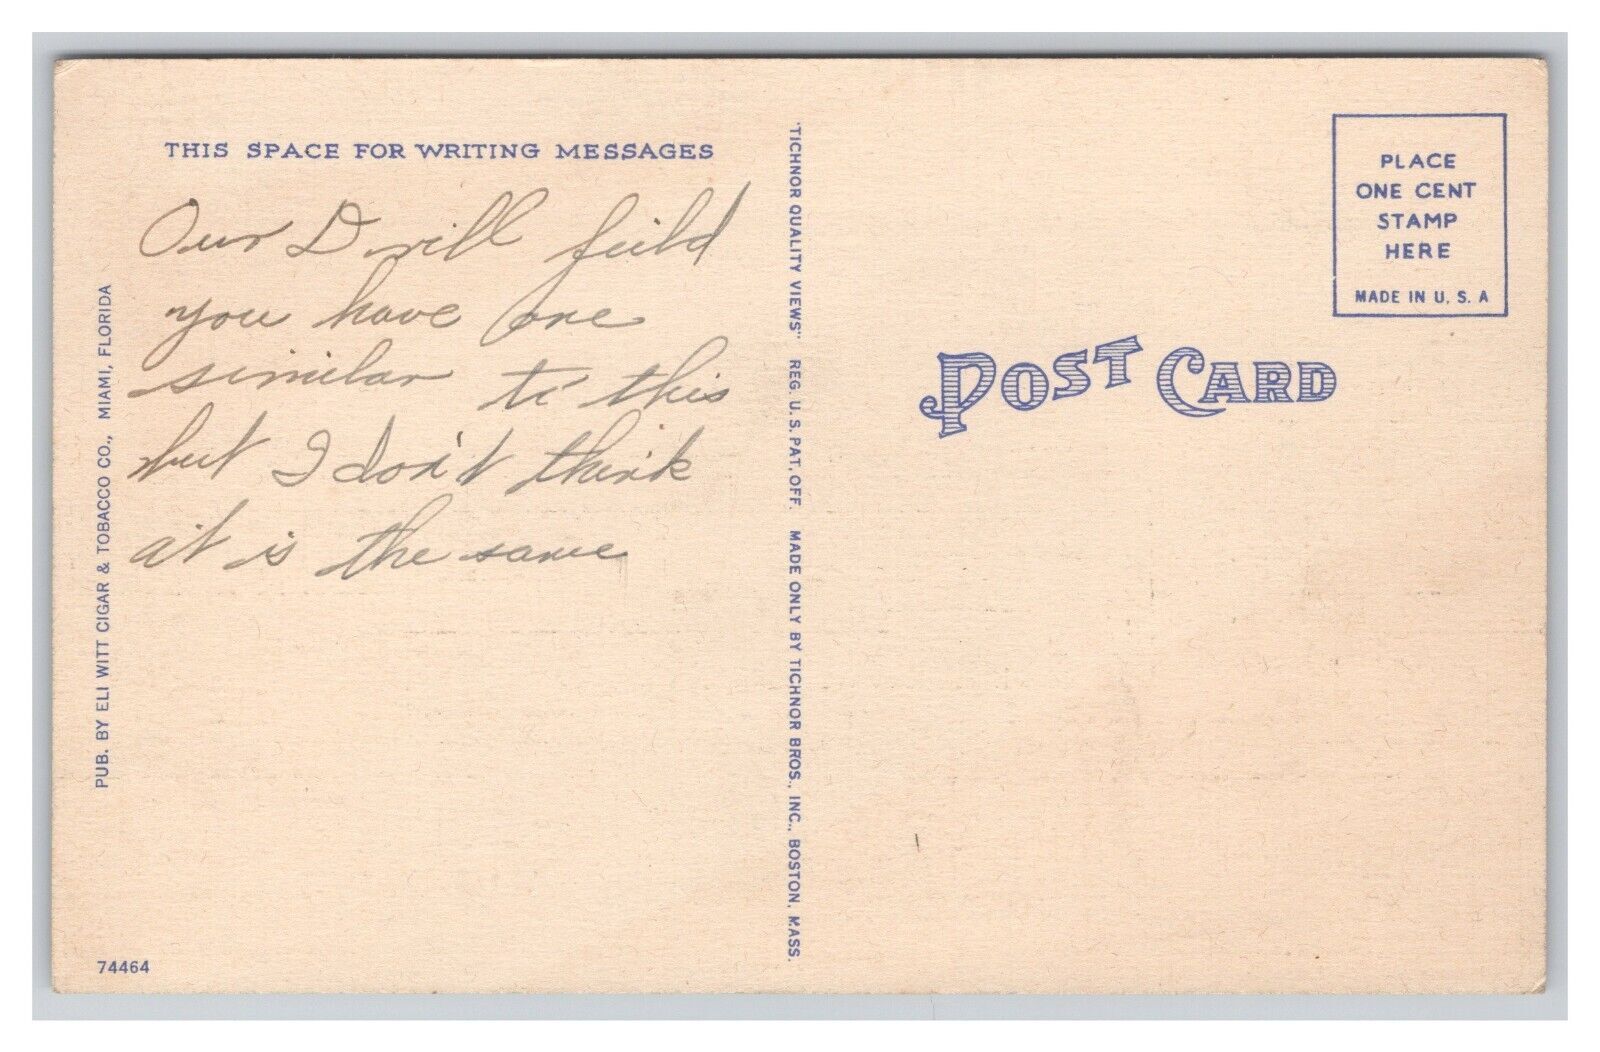 THIS SPACE FOR WRITING MESSAGES
Our Drill feild
you have one
similar to this
but I don't think
it is the same
PUB. BY ELI WITT CIGAR & TOBACCO CO., MIAMI, FLORIDA
74464
"TICHNOR QUALITY VIEWS" REG. U. S. PAT. OFF. MADE ONLY BY TICHNOR BROS., INC., BOSTON, MASS.
POST CARD
PLACE
ONE CENT
STAMP
HERE
MADE IN U. S. A